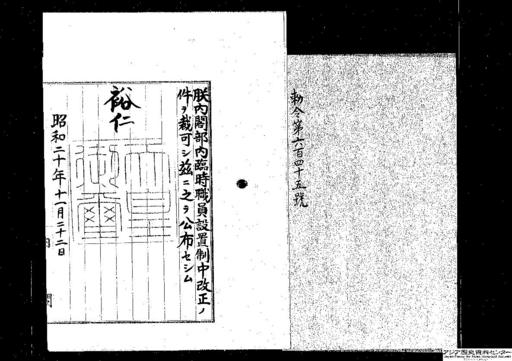 勅令第六百四十五號
朕内閣部内臨時職員設置制中改正ノ
件ヲ裁可シ茲ニ之ヲ公布セシム
裕仁
天皇
御璽
昭和二十年十一月二十二日
アジア歴史資料センター